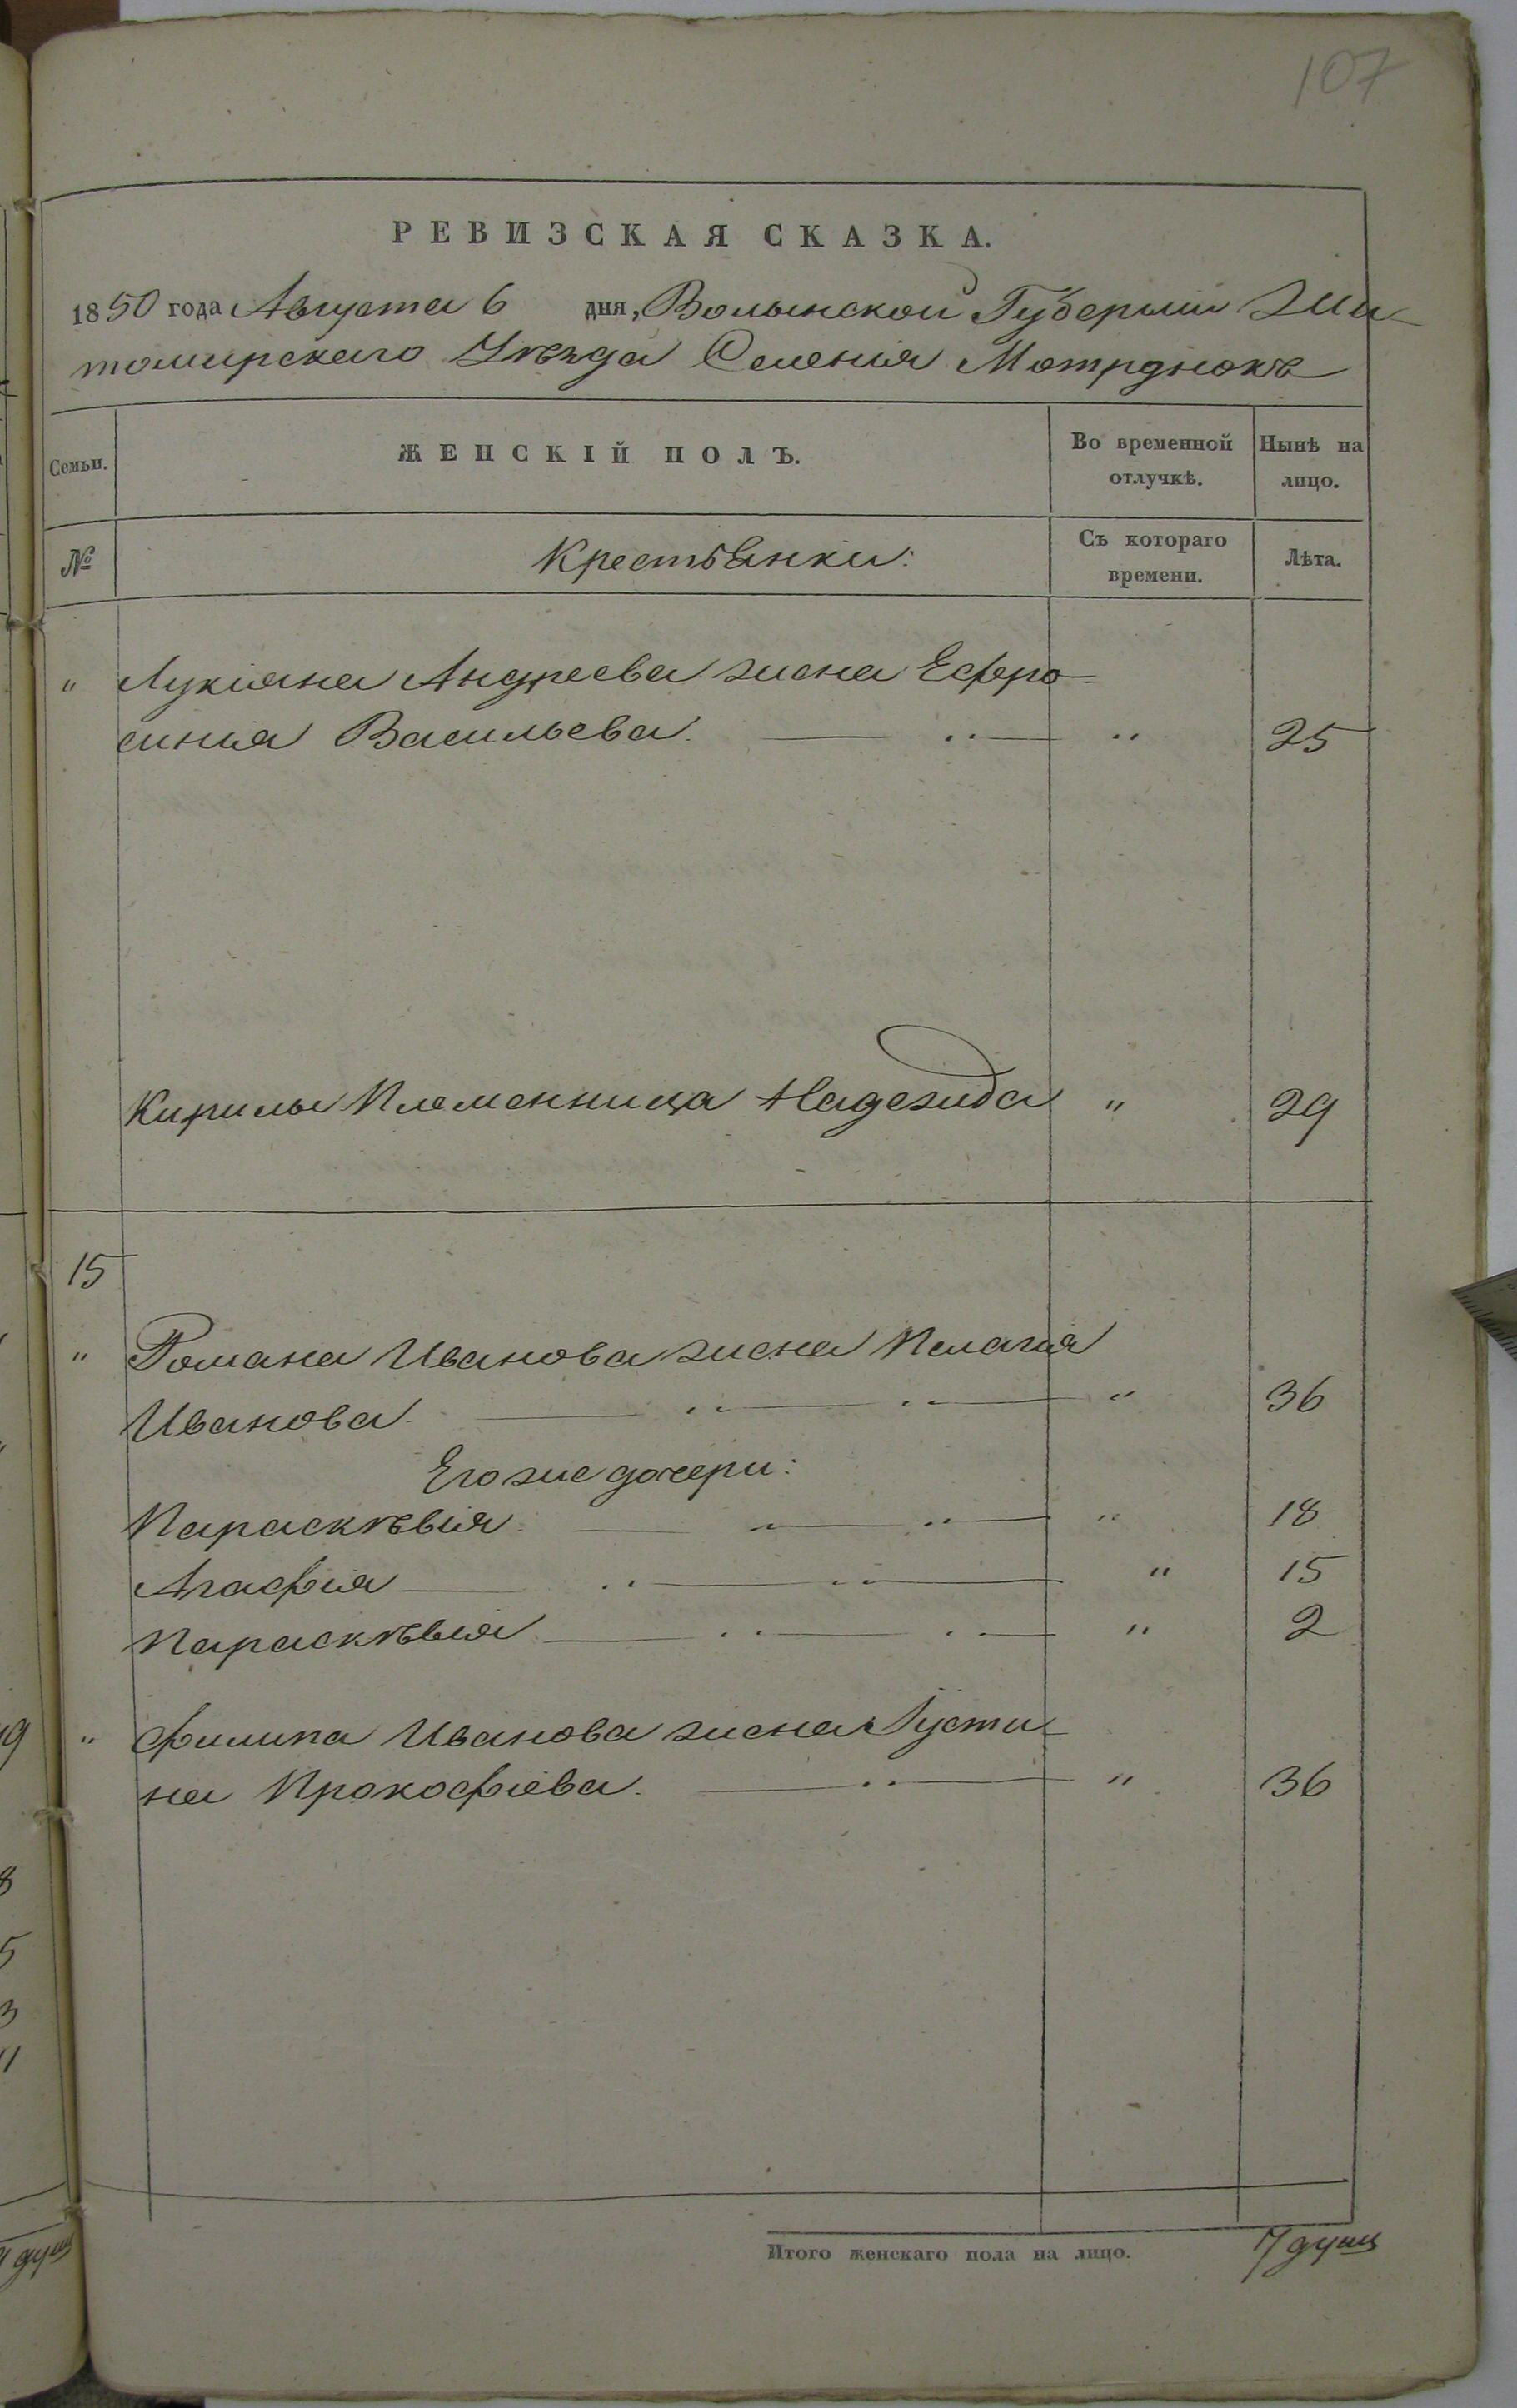 107
РЕВИЗСКАЯ СКАЗКА.
1850 года Августа 6 дня, Волынской Губерніи Жи-
томирскаго Уѣзда Селенія
Семьи.
ЖЕНСКІЙ ПОЛЪ.
Во временной отлучкѣ.
Нынѣ на лицо.
№
Крестьянки:
Съ котораго времени.
Лѣта.
" Лукіяна Андреева жена Ефро-
синія Васильева. " 25
Кирилы Племенница Надежда " 29
15
" Романа Иванова жена Пелагія
Иванова. " 36
Его же дочери:
Параскѣвія. " 18
Агафія " 15
Параскѣвія " 2
" Филипа Иванова жена Іусти-
на Прокофіева. " 36
Итого женскаго пола на лицо. 7 душъ
9
8
5
3
11
душъ